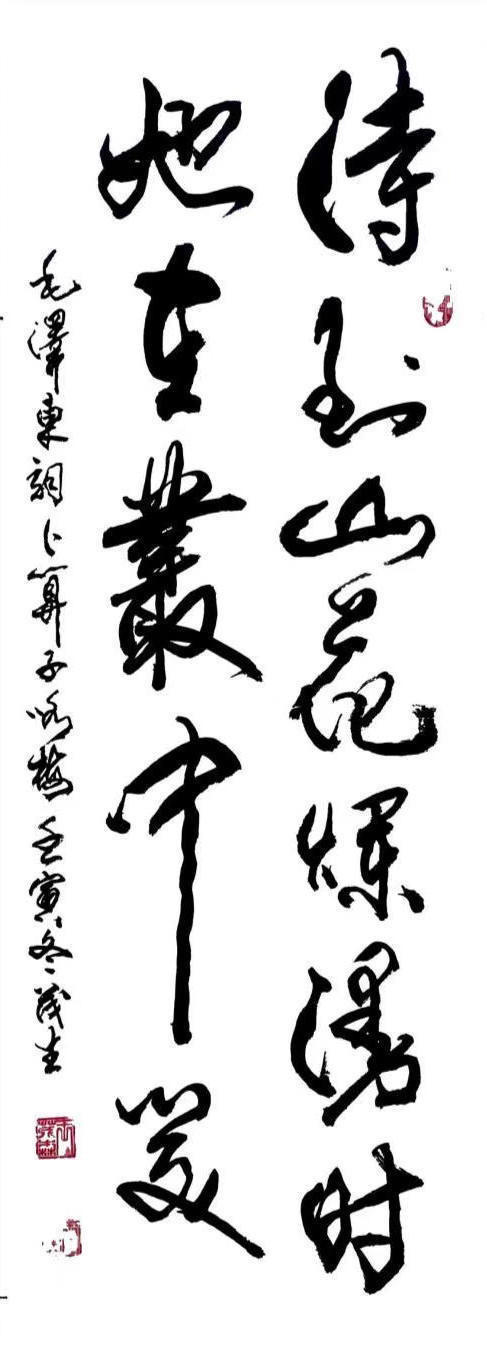 待到山花爛漫时
她在叢中笑
毛澤東詞卜算子咏梅壬寅冬茂生